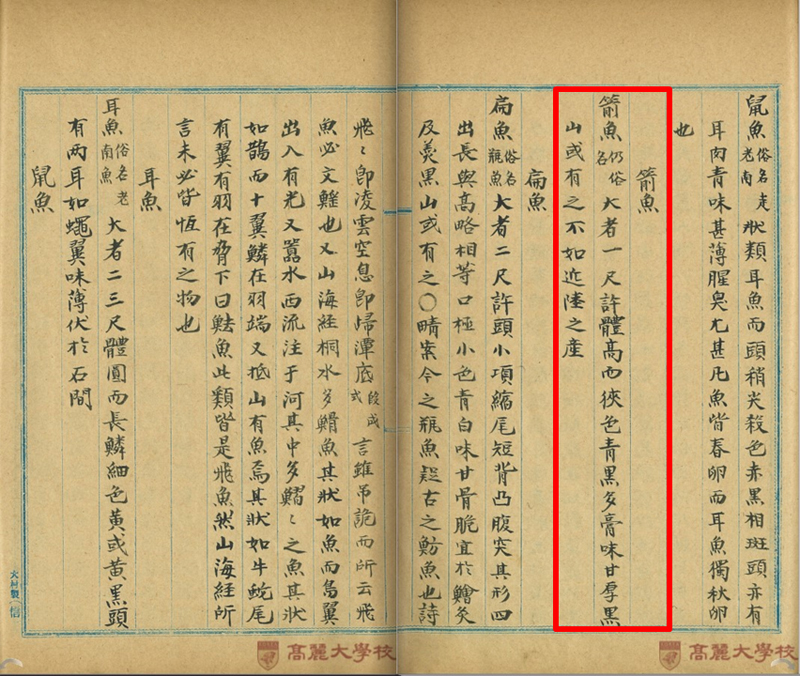 鼠魚俗名走老南狀類耳魚而頭稍尖殺色赤黑相斑頭亦有
耳肉青味甚薄腥臭尤甚凡魚皆春卵而耳魚獨秋卵
也
箭魚
箭魚仍俗名大者一尺許體高而狹色青黑多膏味甘厚黑
山或有之不如近陸之産
扁魚
扁魚俗名瓶魚大者二尺許頭小項縮尾短背凸腹突其形四
出長與高略相等口極小色青白味甘骨脆宜於鱠炙
及羹黑山或有之○晴案今之瓶魚疑古之魴魚也詩
飛〻卽淩雲空息卽歸潭底段成式言雖吊詭而所云飛
魚必文鰩也又山海経桐水多䱻魚其狀如魚而鳥翼
出入有光又嚚水西流注于河其中多鰼〻之魚其狀
如鵲而十翼鱗在羽端又抵山有魚焉其狀如牛蛇尾
有翼有羽在脅下曰鯥魚此類皆是飛魚然山海経所
言未必皆恆有之物也
耳魚
耳魚俗名老南魚大者二三尺體圓而長鱗細色黃或黃黑頭
有兩耳如蠅翼味薄伏於石間
鼠魚
高麗大學校
高麗大學校